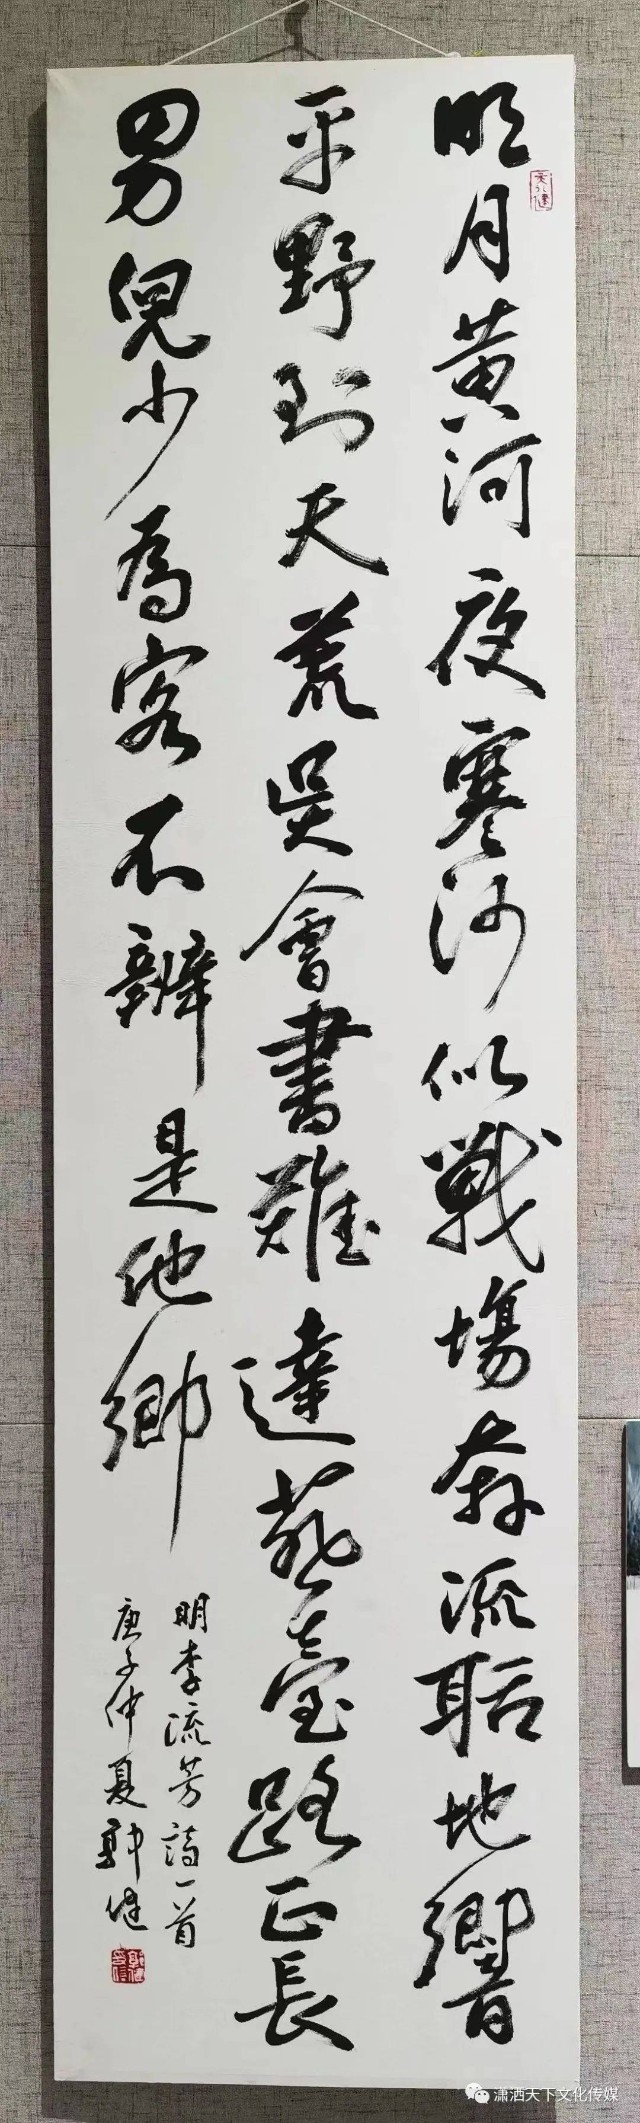 明月黃河夜寒沙似戰場奔流聒地響
平野到天荒吳會書難達燕臺路正長
男兒少為客不辨是他鄉
明李流芳詩一首
庚子仲夏郭健
潇洒天下文化传媒